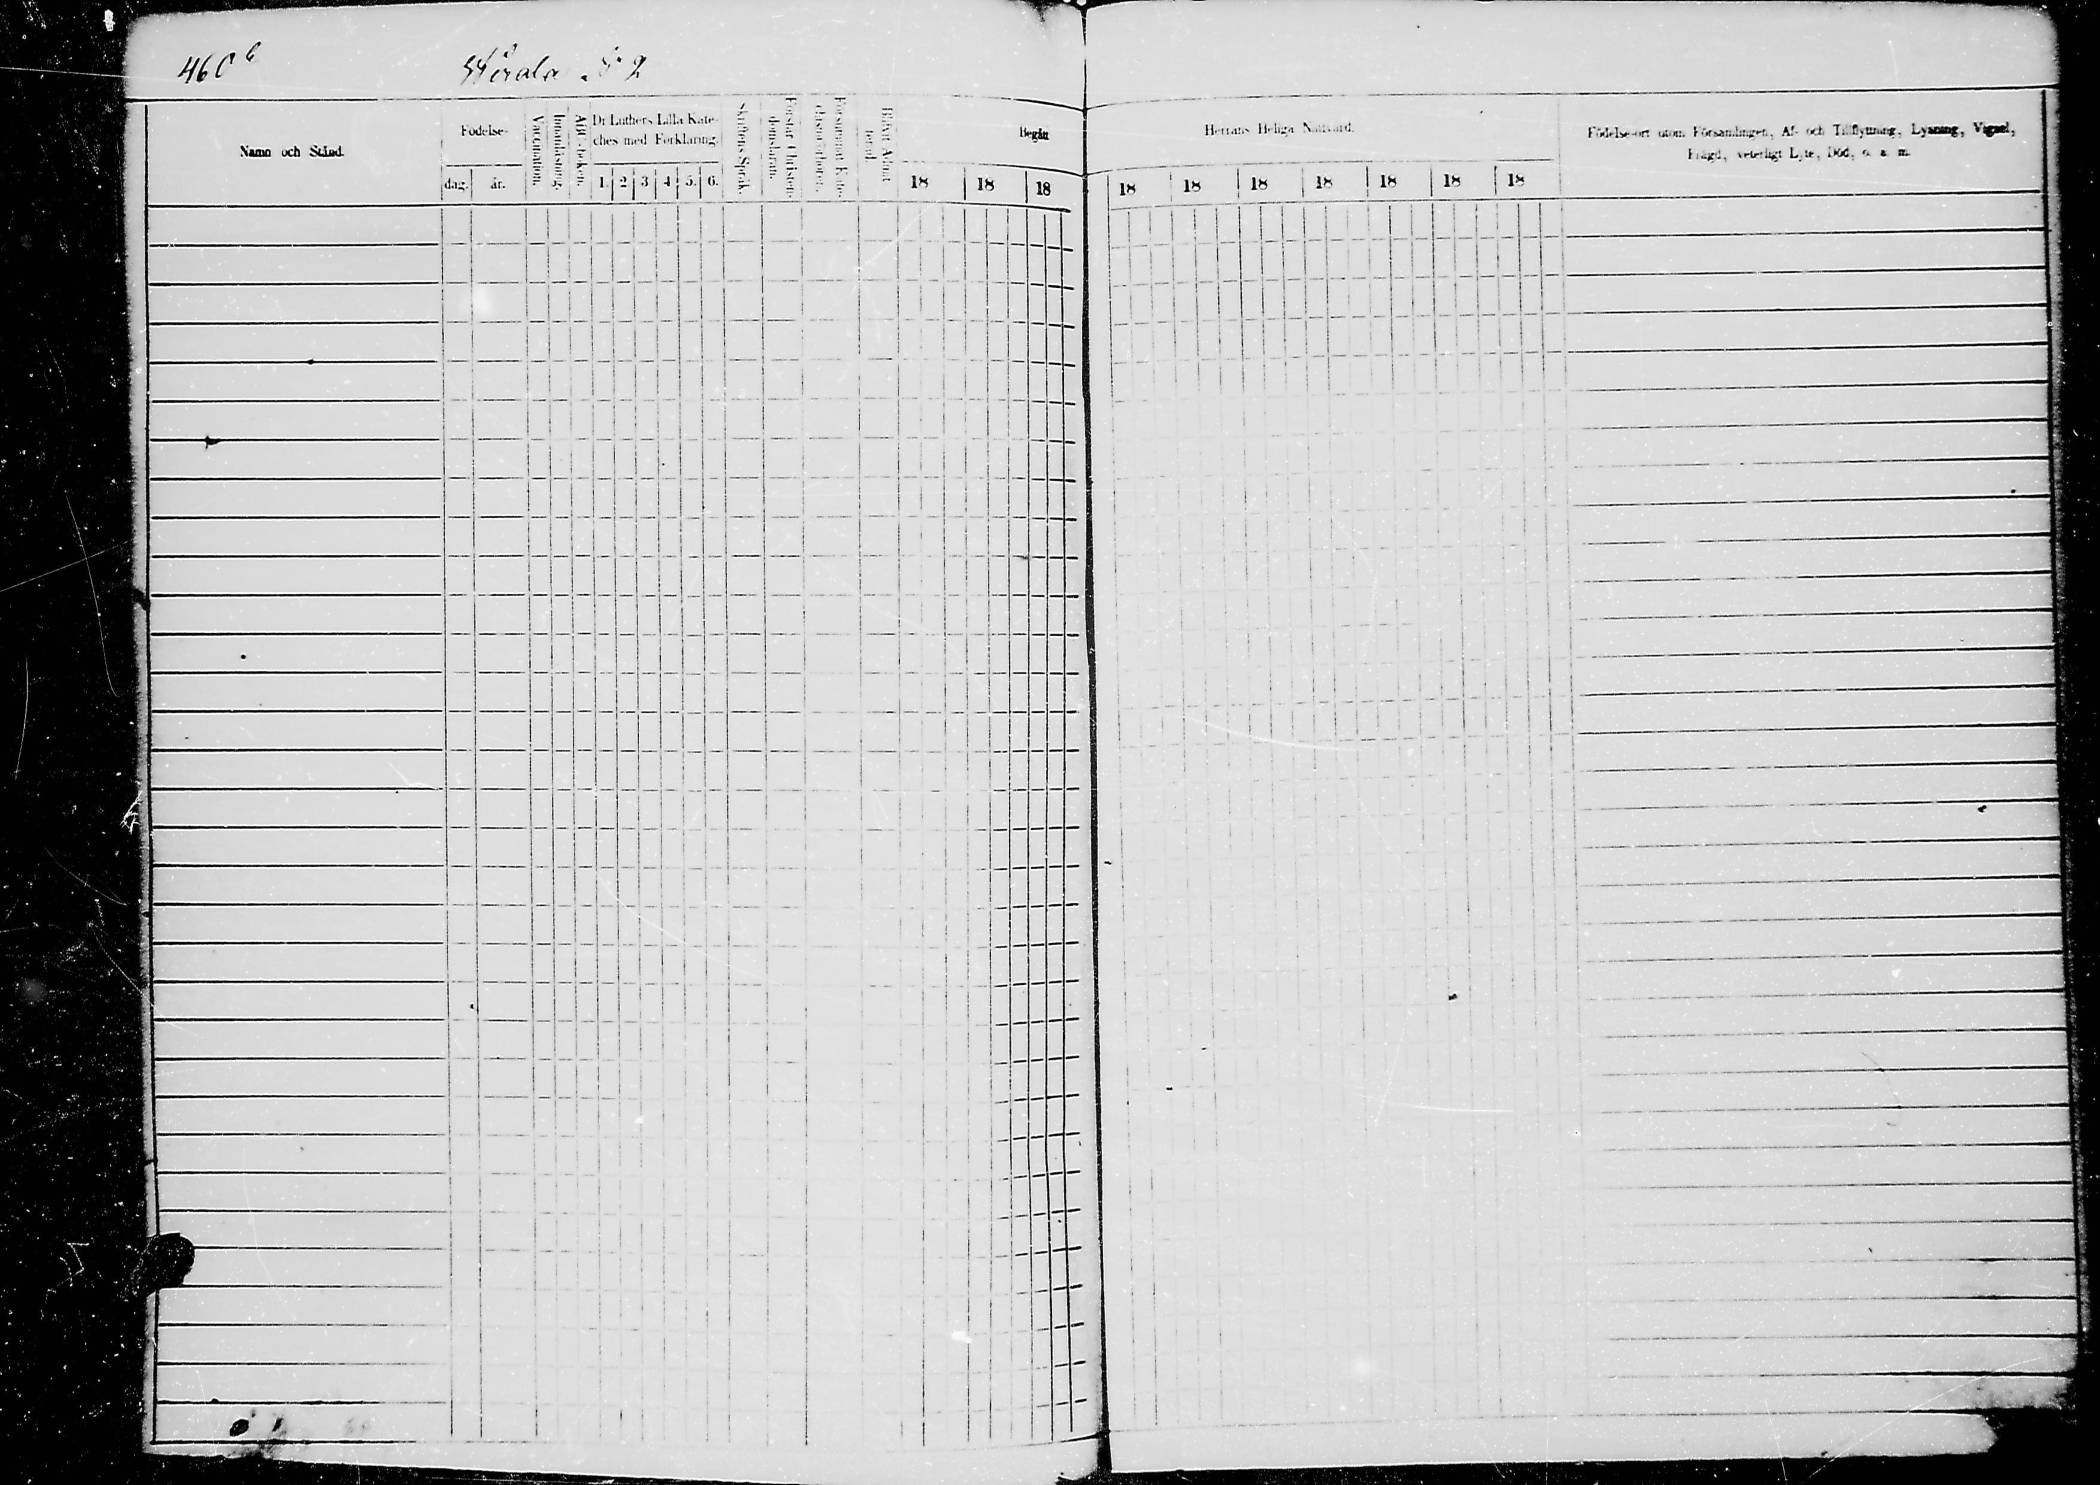 460 b
N° 2
Namn och Stånd.
Födelse-
dag. år.
Vaccination.
Innanläsning.
ABC-boken.
Dr Luthers Lilla Kate-
ches med Förklaring.
1. 2 3 4 5. 6.
Skriftens Språk.
Förstår Christen-
domsläran.
Försummat Kate-
18 18 18
Begått
Herrans Heliga Nattvard.
18 18 18 18 18 18 18
Födelse-ort utom Församlingen, Af- och Tillflyttning, Lysning, Vigsel,
Frägd, veterligt Lyte, Död, o. s. m.